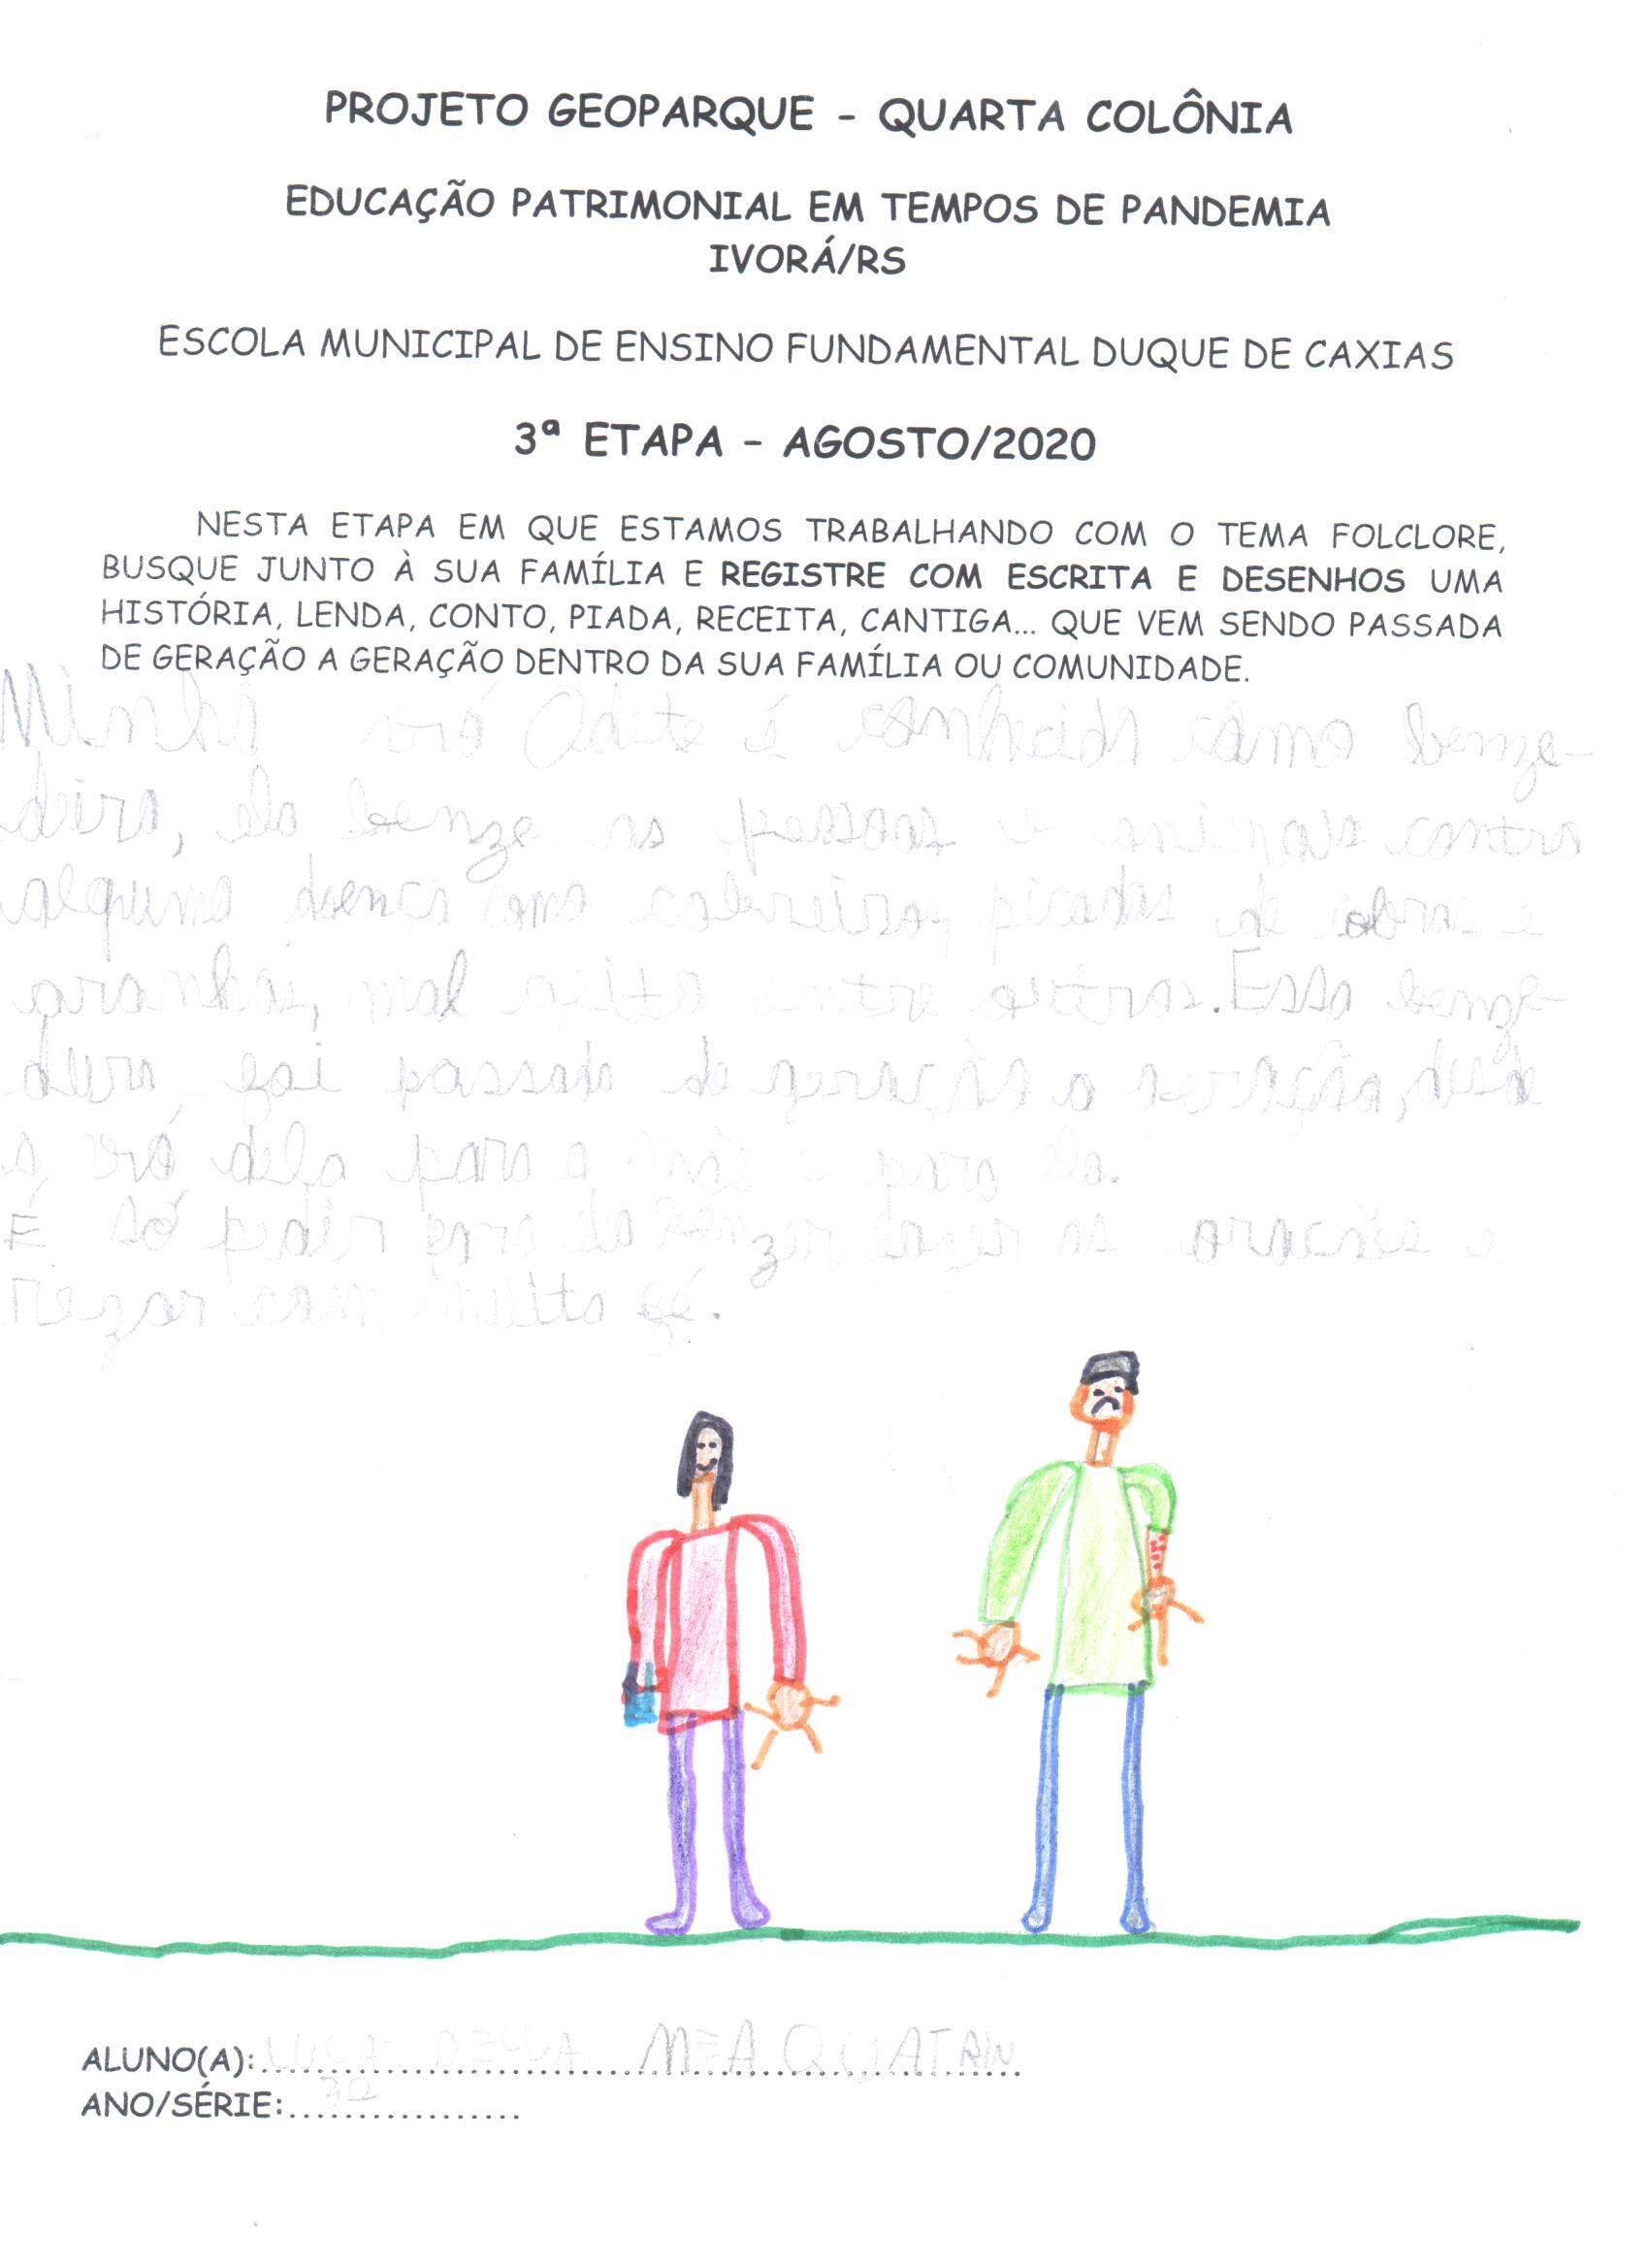 PROJETO GEOPARQUE - QUARTA COLÔNIA
EDUCAÇÃO PATRIMONIAL EM TEMPOS DE PANDEMIA
IVORÁ/RS
ESCOLA MUNICIPAL DE ENSINO FUNDAMENTAL DUQUE DE CAXIAS
3ª ETAPA - AGOSTO/2020
NESTA ETAPA EM QUE ESTAMOS TRABALHANDO COM O TEMA FOLCLORE,
BUSQUE JUNTO À SUA FAMÍLIA E REGISTRE COM ESCRITA E DESENHOS UMA
HISTÓRIA, LENDA, CONTO, PIADA, RECEITA, CANTIGA... QUE VEM SENDO PASSADA
DE GERAÇÃO A GERAÇÃO DENTRO DA SUA FAMÍLIA OU COMUNIDADE.
Minha vó Odete é conhecida como benze-
deira, ela benze as pessoas e animais contra
alguma doença como cobreiro, picadas de cobras e
aranhas, mal feito entre outros. Essa benze-
dura foi passada de geração a geração, desde
a vó dela para a mãe e para ela.
É só pedir para ela benzer fazer as orações e
rezar com muita fé.
ALUNO(A): LUCAS DELLA MEA QUATRIN
ANO/SÉRIE: 3º